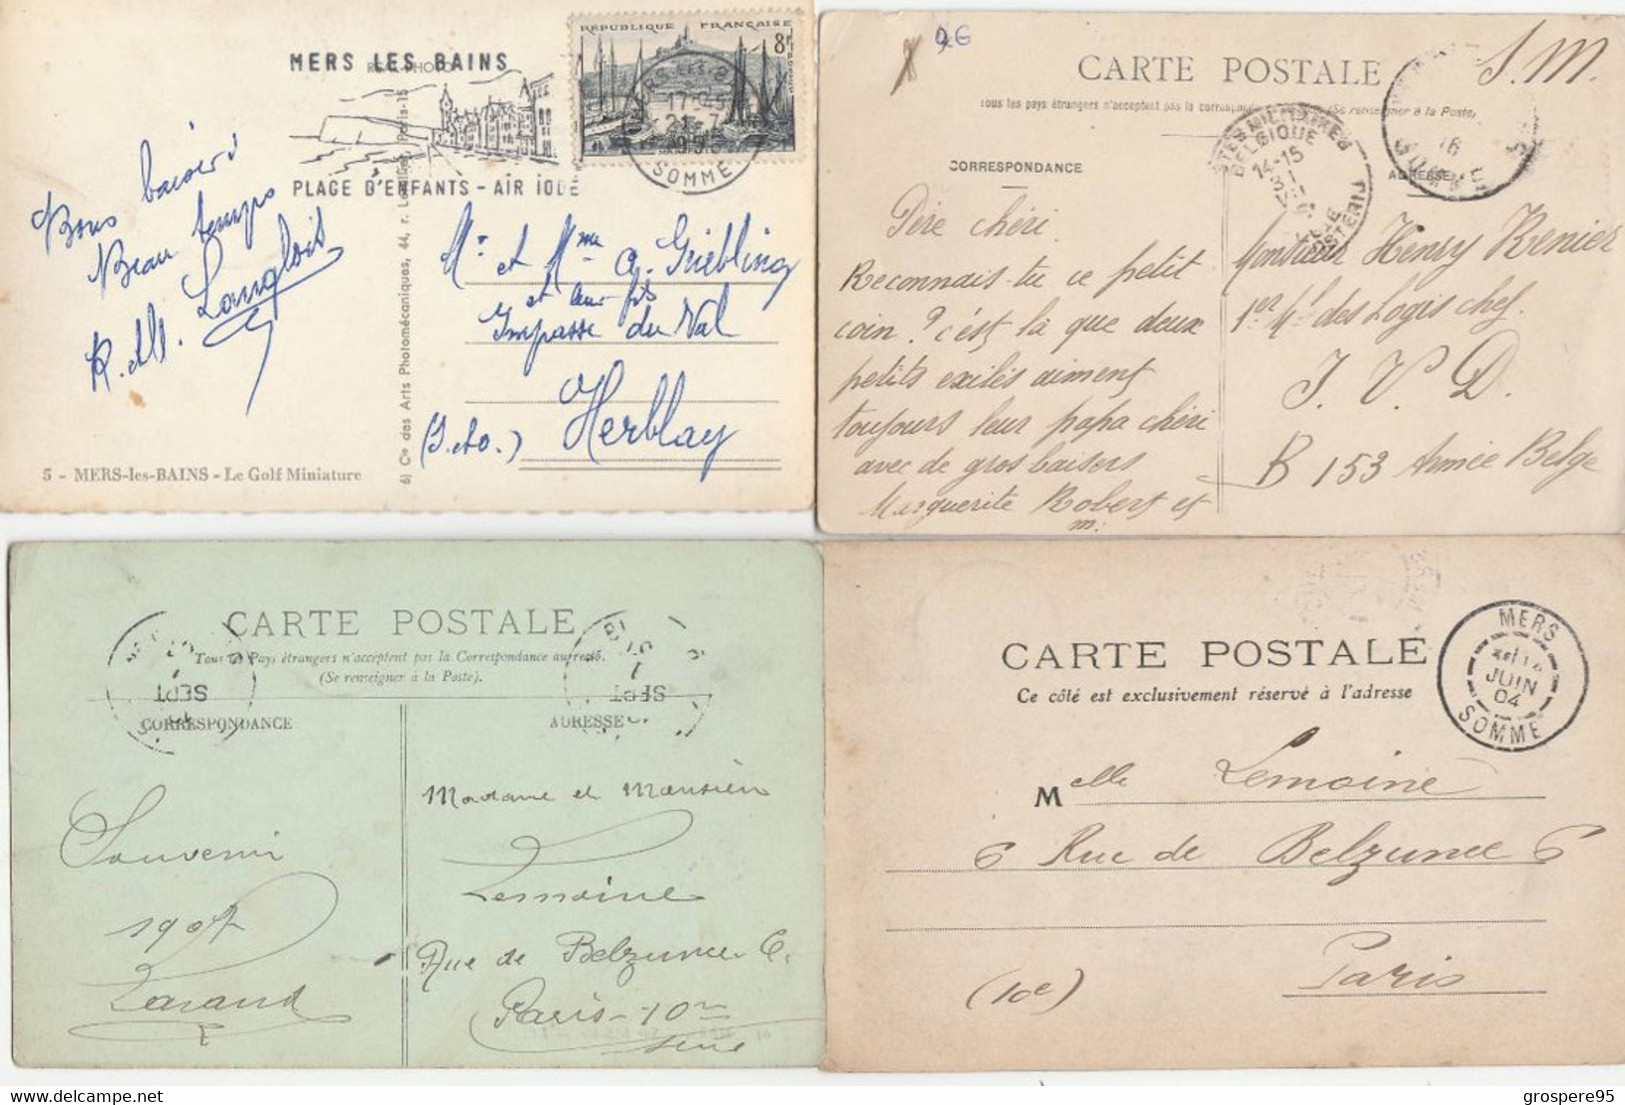 MERS LES BAINS
PLAGE D'ENFANTS - AIR IODÉ
RÉPUBLIQUE FRANÇAISE
8f
SOMME
Bons baisers
Beau temps
Langlois
Mr et Mme G. Griebling
et leur fils
Impasse du Val
Herblay
(S. et O.)
5 - MERS-les-BAINS - Le Golf Miniature
6) Cie des Arts Photomécaniques, 44, r. Letellier, Paris-15
S.M.
CARTE POSTALE
Tous les pays étrangers n'acceptent pas la correspondance (Se renseigner à la Poste)
CORRESPONDANCE
ADRESSE
BELGIQUE
14-15
Père chéri.
Reconnais-tu ce petit
coin? c'est là que deux
petits exilés aiment
toujours leur papa chéri
avec de gros baisers
Marguerite Robert et
m:
Monsieur Henry Renier
1er Ml des Logis chef.
J. V. D.
B 153 Armée Belge
CARTE POSTALE
Tous les Pays étrangers n'acceptent pas la Correspondance au recto.
(Se renseigner à la Poste).
SEPT
SEPT
CORRESPONDANCE
ADRESSE
Souvenir
1907
Madame et Monsieur
Lemoine
Rue de Belzunce 6.
Paris - 10me
Seine
CARTE POSTALE
Ce côté est exclusivement réservé à l'adresse
MERS
JUIN
04
SOMME
Melle Lemoine
6 Rue de Belzunce 6
Paris
(10e)
grospere95